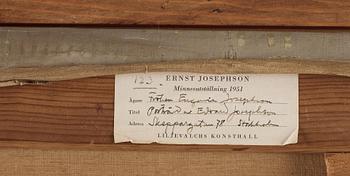 133
ERNST JOSEPHSON
Minnesutställning 1951
Ägare Fröken Josephson
Titel Porträtt av Edvard Josephson
Adress Skeppargatan 78 Stockholm
LILJEVALCHS KONSTHALL